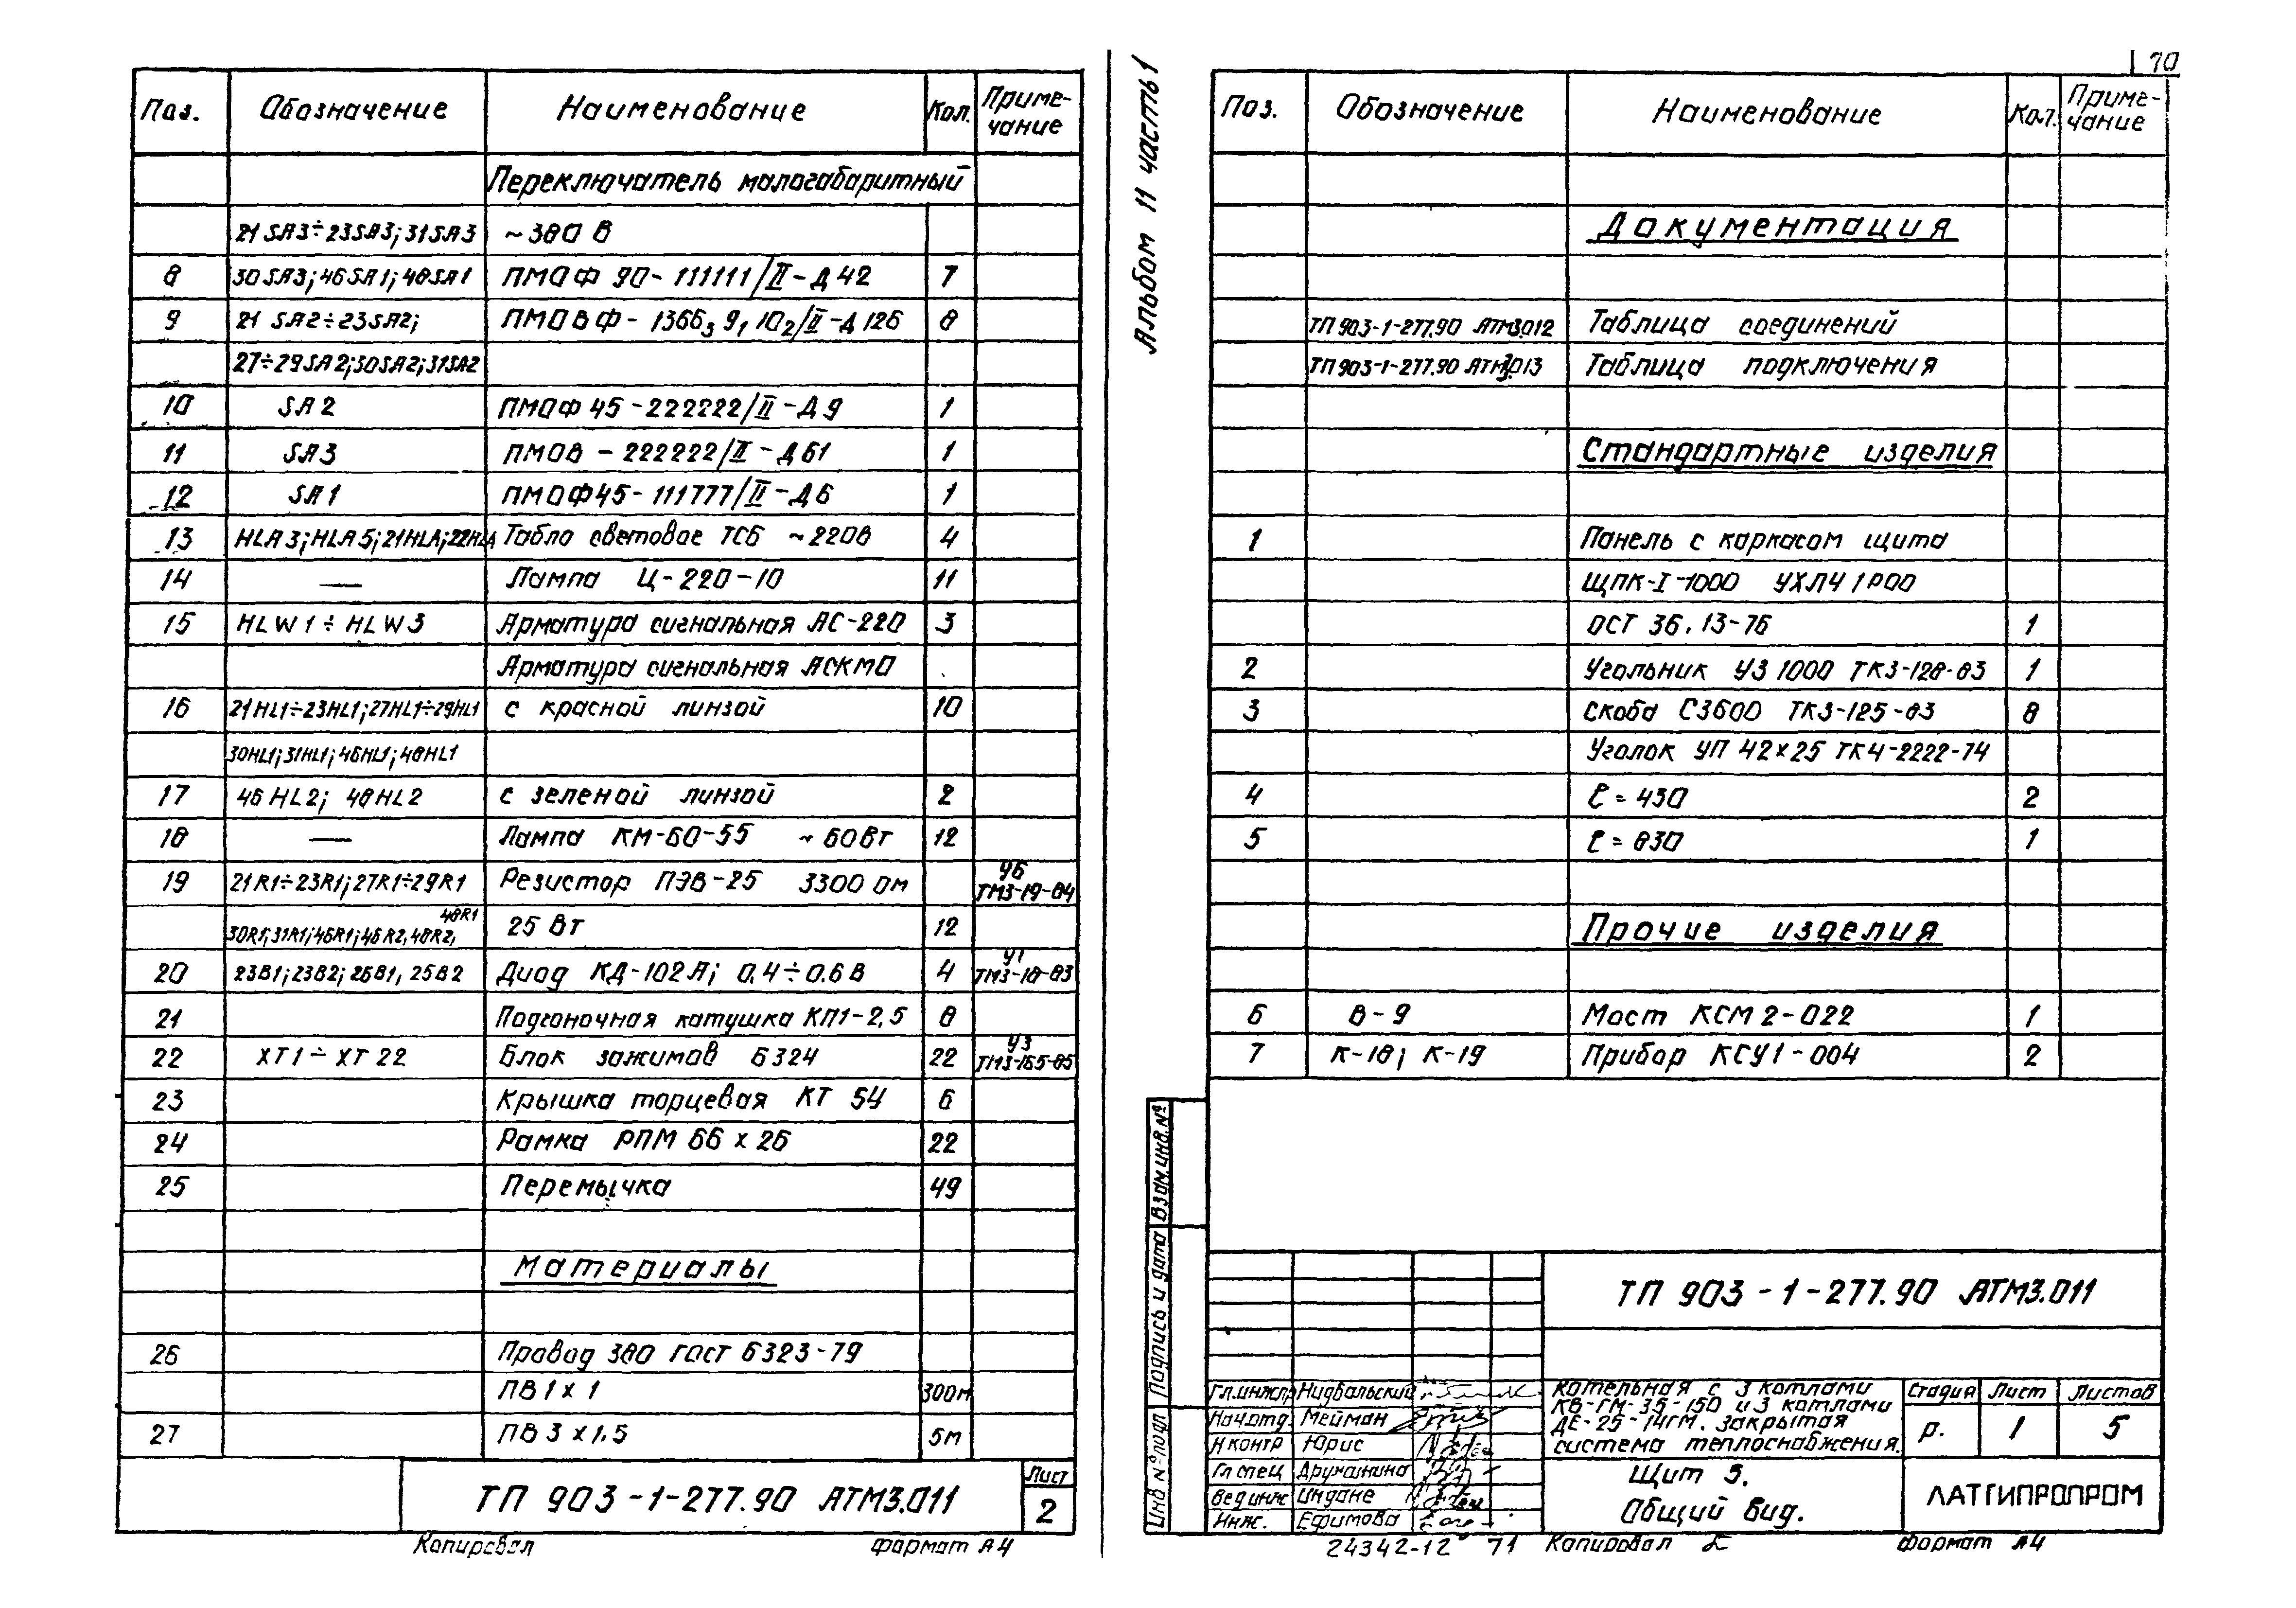 Поз. Обозначение Наименование Кол. Приме-чание
Переключатель малогабаритный
21SA3÷23SA3; 31SA3 ~380 В
8 30SA3; 46SA1; 48SA1 ПМОФ 90-111111/II-Д42 7
9 21 SA2÷23SA2; ПМОВФ-1366₃ 9₁ 10₂/II-Д126 8
27÷29SA2; 30SA2; 31SA2
10 SA2 ПМОФ 45-222222/II-Д9 1
11 SA3 ПМОВ-222222/II-Д61 1
12 SA1 ПМОФ45-111777/II-Д6 1
13 HLA3; HLA5; 21HLA; 22HLA Табло световое ТСБ ~220В 4
14 — Лампа Ц-220-10 11
15 HLW1÷HLW3 Арматура сигнальная АС-220 3
Арматура сигнальная АСКМО
16 21HL1÷23HL1; 27HL1÷29HL1 с красной линзой 10
30HL1; 31HL1; 46HL1; 48HL1
17 46HL2; 48HL2 с зеленой линзой 2
18 — Лампа КМ-60-55 ~60Вт 12
19 21R1÷23R1; 27R1÷29R1 Резистор ПЭВ-25 3300 Ом У6 ТМ3-19-84
48R1
30R1; 31R1; 46R1; 46R2, 48R2, 25 Вт 12
20 23В1; 23В2; 25В1, 25В2 Диод КД-102А; 0,4÷0.6В 4 У1 ТМ3-18-83
21 Подгоночная катушка КП1-2,5 8
22 XT1÷XT22 Блок зажимов Б324 22 У3 ТМ3-165-85
23 Крышка торцевая КТ 5У 6
24 Рамка РПМ 66х26 22
25 Перемычка 49
Материалы
26 Провод 380 ГОСТ 6323-79
ПВ1х1 300м
27 ПВ3х1.5 5м
ТП 903-1-277.90 АТМ3.011 Лист 2
Копировал Формат А4
Альбом 11 часть 1
70
Поз. Обозначение Наименование Кол. Приме-чание
Документация
ТП903-1-277.90 АТМ3.012 Таблица соединений
ТП903-1-277.90 АТМ3.013 Таблица подключения
Стандартные изделия
1 Панель с каркасом щита
ЩПК-I-1000 УХЛ4 IP00
ОСТ 36.13-76 1
2 Угольник У3 1000 ТК3-128-83 1
3 Скоба С3600 ТК3-125-83 8
Уголок УП 42х25 ТК4-2222-74
4 ℓ=430 2
5 ℓ=830 1
Прочие изделия
6 В-9 Мост КСМ2-022 1
7 К-18; К-19 Прибор КСУ1-004 2
Взам.инв.№
Подпись и дата
Инв № подл
ТП 903-1-277.90 АТМ3.011
Гл.инж.пр Нидбальский
Нач.отд. Мейман
Н контр Юрис
Гл спец Дружинина
Вед инж Индане
Инж. Ефимова
Котельная с 3 котлами
КВ-ГМ-35-150 и 3 котлами
ДЕ-25-14ГМ. Закрытая
система теплоснабжения.
Стадия Лист Листов
Р. 1 5
Щит 3.
Общий вид.
ЛАТГИПРОПРОМ
24342-12 71 Копировал Формат А4